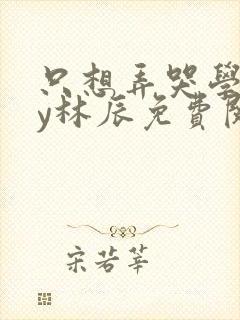 只想弄哭學
y林辰免費閱
宋若華